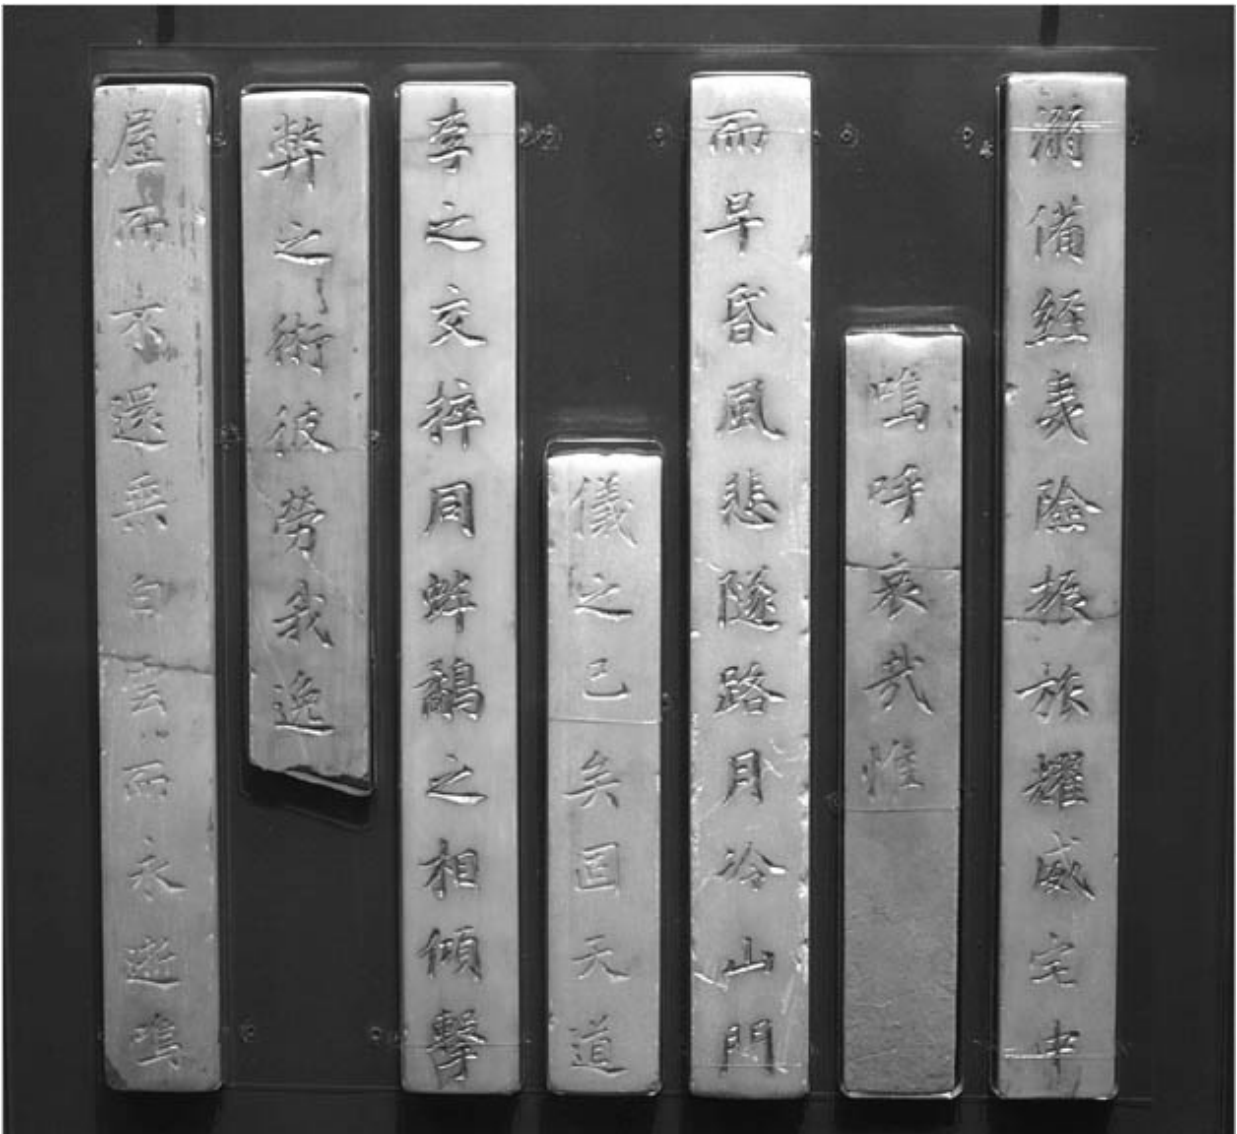 溺備經夷險振旅耀威宅中
嗚呼哀哉惟
而早昏風悲隧路月冷山門
儀之已矣固天道
之交捽同蚌鷸之相傾擊
之術彼勞我逸
屋而不還乘白雲而永逝嗚